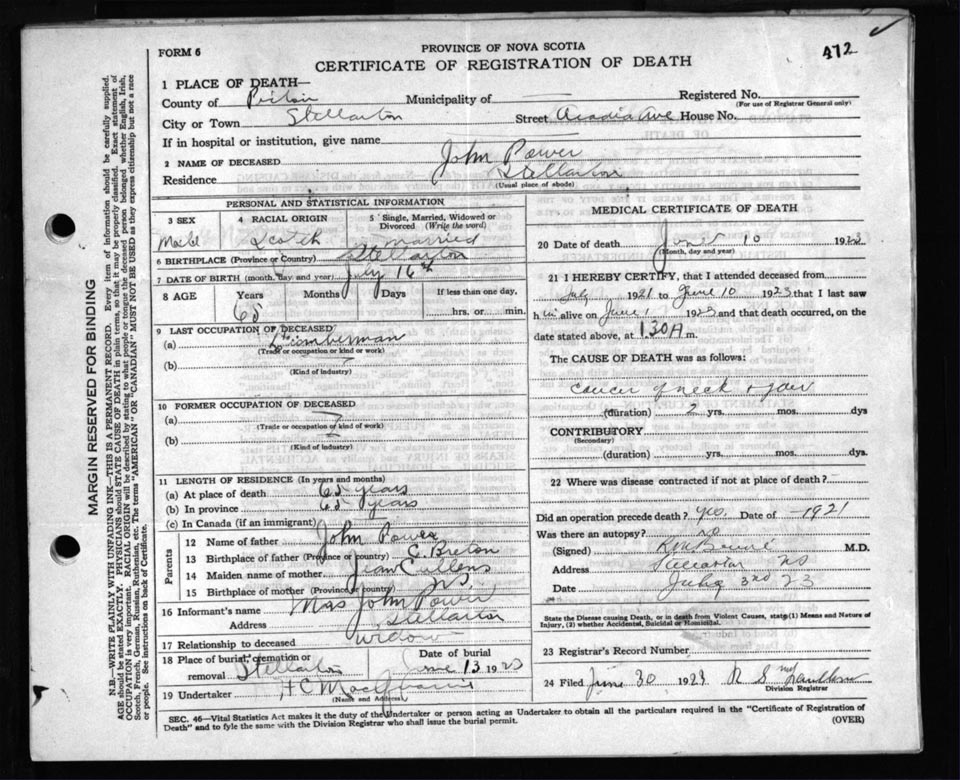 FORM 6
PROVINCE OF NOVA SCOTIA
472
CERTIFICATE OF REGISTRATION OF DEATH
1 PLACE OF DEATH—
County of Pictou Municipality of — Registered No.
(For use of Registrar General only)
City or Town Stellarton Street Acadia Ave House No.
If in hospital or institution, give name
2 NAME OF DECEASED John Power
Residence Stellarton
(Usual place of abode)
PERSONAL AND STATISTICAL INFORMATION
3 SEX Male
4 RACIAL ORIGIN Scotch
5 Single, Married, Widowed or Divorced (Write the word) Married
6 BIRTHPLACE (Province or Country) Stellarton
7 DATE OF BIRTH (month, day and year) July 16th
8 AGE Years Months Days If less than one day,
65 hrs. or min.
9 LAST OCCUPATION OF DECEASED
(a) Timberman
(Trade or occupation or kind of work)
(b)
(Kind of industry)
10 FORMER OCCUPATION OF DECEASED
(a)
(Trade or occupation or kind of work)
(b)
(Kind of industry)
11 LENGTH OF RESIDENCE (In years and months)
(a) At place of death 65 years
(b) In province 65 years
(c) In Canada (if an immigrant)
Parents
12 Name of father John Power
13 Birthplace of father (Province or country) C. Breton
14 Maiden name of mother Jean Cullens
15 Birthplace of mother (Province or country) N.S.
16 Informant's name Mrs John Power
Address Stellarton
17 Relationship to deceased Widow
18 Place of burial, cremation or removal Stellarton
Date of burial June 13 1923
19 Undertaker
(Name and Address)
MEDICAL CERTIFICATE OF DEATH
20 Date of death June 10 192
(Month, day and year)
21 I HEREBY CERTIFY, that I attended deceased from
July 1921 to June 10 1923 that I last saw
him alive on June 1923 and that death occurred, on
date stated above, at 1.30 A m.
The CAUSE OF DEATH was as follows:
Cancer of neck & jaw
(duration) 2 yrs. mos. dys
CONTRIBUTORY
(Secondary)
(duration) yrs. mos. dys.
22 Where was disease contracted if not at place of death?
Did an operation precede death? yes. Date of —1921
Was there an autopsy? no
(Signed) M.D.
Address Stellarton NS
Date July 3rd 23
State the Disease causing Death, or in death from Violent Causes, state (1) Means and Nature of
Injury, (2) whether Accidental, Suicidal or Homicidal.
23 Registrar's Record Number
24 Filed June 30 192
Division Registrar
SEC. 46—Vital Statistics Act makes it the duty of the Undertaker or person acting as Undertaker to obtain all the particulars required in the "Certificate of Registration of
Death" and to fyle the same with the Division Registrar who shall issue the burial permit.
(OVER)
MARGIN RESERVED FOR BINDING
N.B.—WRITE PLAINLY WITH UNFADING INK—THIS IS A PERMANENT RECORD. Every item of information should be carefully supplied.
AGE should be stated EXACTLY. PHYSICIANS should STATE CAUSE OF DEATH in plain terms, so that it may be properly classified. Exact statement of
OCCUPATION is very important. RACIAL ORIGIN will be described by stating to what people or tongue the deceased person belonged, whether English, Irish,
Scotch, French, German, Russian, Ruthenian, etc. The terms "AMERICAN" OR "CANADIAN" MUST NOT BE USED as they express citizenship but not a race
or people. See instructions on back of Certificate.